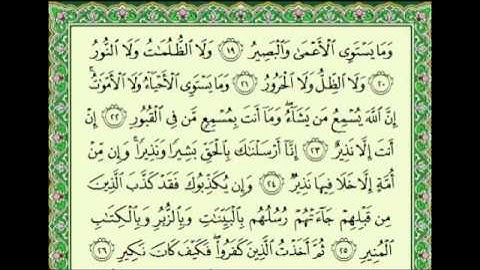 وَمَا يَسْتَوِى ٱلْأَعْمَىٰ وَٱلْبَصِيرُ ١٩ وَلَا ٱلظُّلُمَٰتُ وَلَا ٱلنُّورُ
٢٠ وَلَا ٱلظِّلُّ وَلَا ٱلْحَرُورُ ٢١ وَمَا يَسْتَوِى ٱلْأَحْيَآءُ وَلَا ٱلْأَمْوَٰتُ ۚ
إِنَّ ٱللَّهَ يُسْمِعُ مَن يَشَآءُ ۖ وَمَآ أَنتَ بِمُسْمِعٍ مَّن فِى ٱلْقُبُورِ ٢٢ إِنْ
أَنتَ إِلَّا نَذِيرٌ ٢٣ إِنَّآ أَرْسَلْنَٰكَ بِٱلْحَقِّ بَشِيرًا وَنَذِيرًا ۚ وَإِن مِّنْ
أُمَّةٍ إِلَّا خَلَا فِيهَا نَذِيرٌ ٢٤ وَإِن يُكَذِّبُوكَ فَقَدْ كَذَّبَ ٱلَّذِينَ
مِن قَبْلِهِمْ جَآءَتْهُمْ رُسُلُهُم بِٱلْبَيِّنَٰتِ وَبِٱلزُّبُرِ وَبِٱلْكِتَٰبِ
ٱلْمُنِيرِ ٢٥ ثُمَّ أَخَذْتُ ٱلَّذِينَ كَفَرُوا۟ ۖ فَكَيْفَ كَانَ نَكِيرِ ٢٦